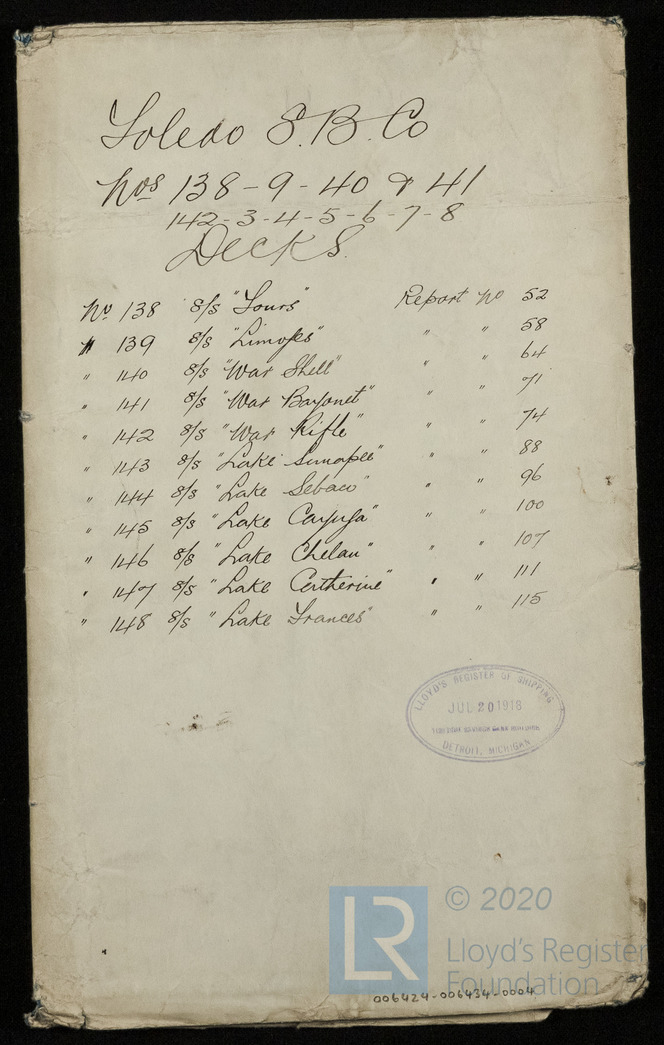 Toledo S.B. Co
Nos 138 - 9 - 40 & 41
142 - 3 - 4 - 5 - 6 - 7 - 8
Decks.
No 138 S/S "Tours" Report No 52
" 139 S/S "Limoges" " " 58
" 140 S/S "War Shell" " " 64
" 141 S/S "War Bayonet" " " 71
" 142 S/S "War Rifle" " " 74
" 143 S/S "Lake Sunapee" " " 88
" 144 S/S "Lake Sebaco" " " 96
" 145 S/S "Lake Cayuga" " " 100
" 146 S/S "Lake Chelan" " " 107
" 147 S/S "Lake Catherine" " " 111
" 148 S/S "Lake Frances" " " 115
LLOYD'S REGISTER OF SHIPPING
JUL 20 1918
DETROIT, MICHIGAN
LR
© 2020
Lloyd's Register
Foundation
006424-006434-0004